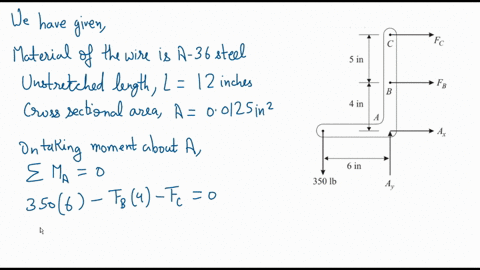 We have given,
Material of the wire is A-36 steel
Unstretched length, L = 12 inches
Cross sectional area, A = 0.0125 in²
On taking moment about A,
∑ M_A = 0
350(6) - F_B(4) - F_C = 0
C
F_C
5 in
B
F_B
4 in
A
A_x
6 in
350 lb
A_y